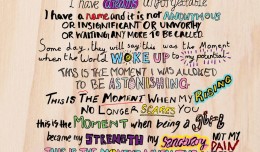 I have ALWAYS been unforgettable
I have a name and it is not ANONYMOUS
OR INSIGNIFICANT OR UNWORTHY
OR WAITING ANY MORE TO BE CALLED.
Some day, they will say this was the Moment
when the World WOKE UP to my Potential.
THIS IS THE MOMENT I WAS ALLOWED
TO BE ASTONISHING.
THIS IS THE MOMENT WHEN MY RISING
NO LONGER SCARES YOU
this is the MOMENT when being a girl
became my STRENGTH my Sanctuary NOT MY
PAIN